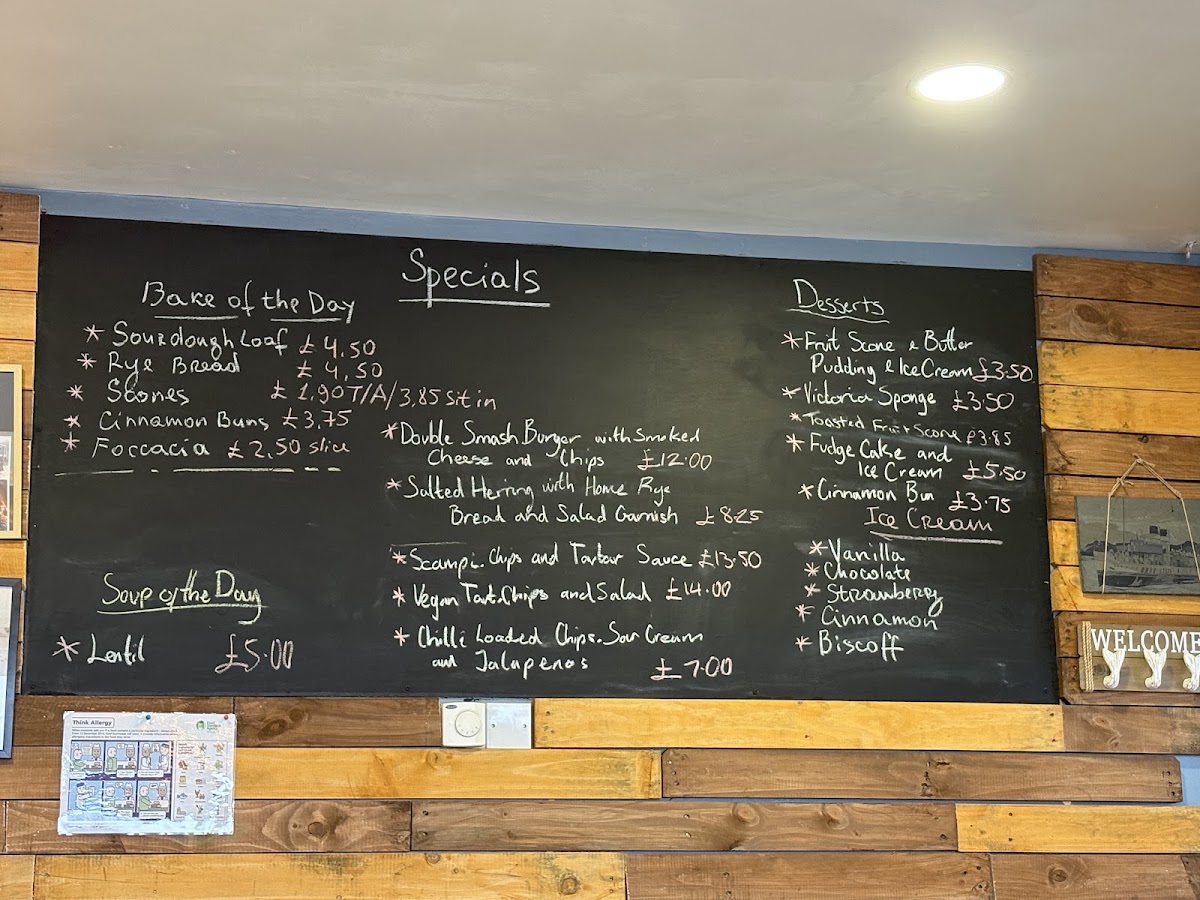 Specials
Bake of the Day
* Sourdough Loaf £4.50
* Rye Bread £4.50
* Scones £1.90 T/A/3.85 sit in
* Cinnamon Buns £3.75
* Foccacia £2.50 slice
Soup of the Day
* Lentil £5.00
* Double Smash Burger with Smoked
Cheese and Chips £12.00
* Salted Herring with Home Rye
Bread and Salad Garnish £8.25
* Scampi. Chips and Tartar Sauce £13.50
* Vegan Tart. Chips and Salad £14.00
* Chilli Loaded Chips. Sour Cream
and Jalapenos £7.00
Desserts
* Fruit Scone & Butter
Pudding & Ice Cream £3.50
* Victoria Sponge £3.50
* Toasted Fruit Scone £3.85
* Fudge Cake and
Ice Cream £5.50
* Cinnamon Bun £3.75
Ice Cream
* Vanilla
* Chocolate
* Strawberry
* Cinnamon
* Biscoff
WELCOME
Think Allergy